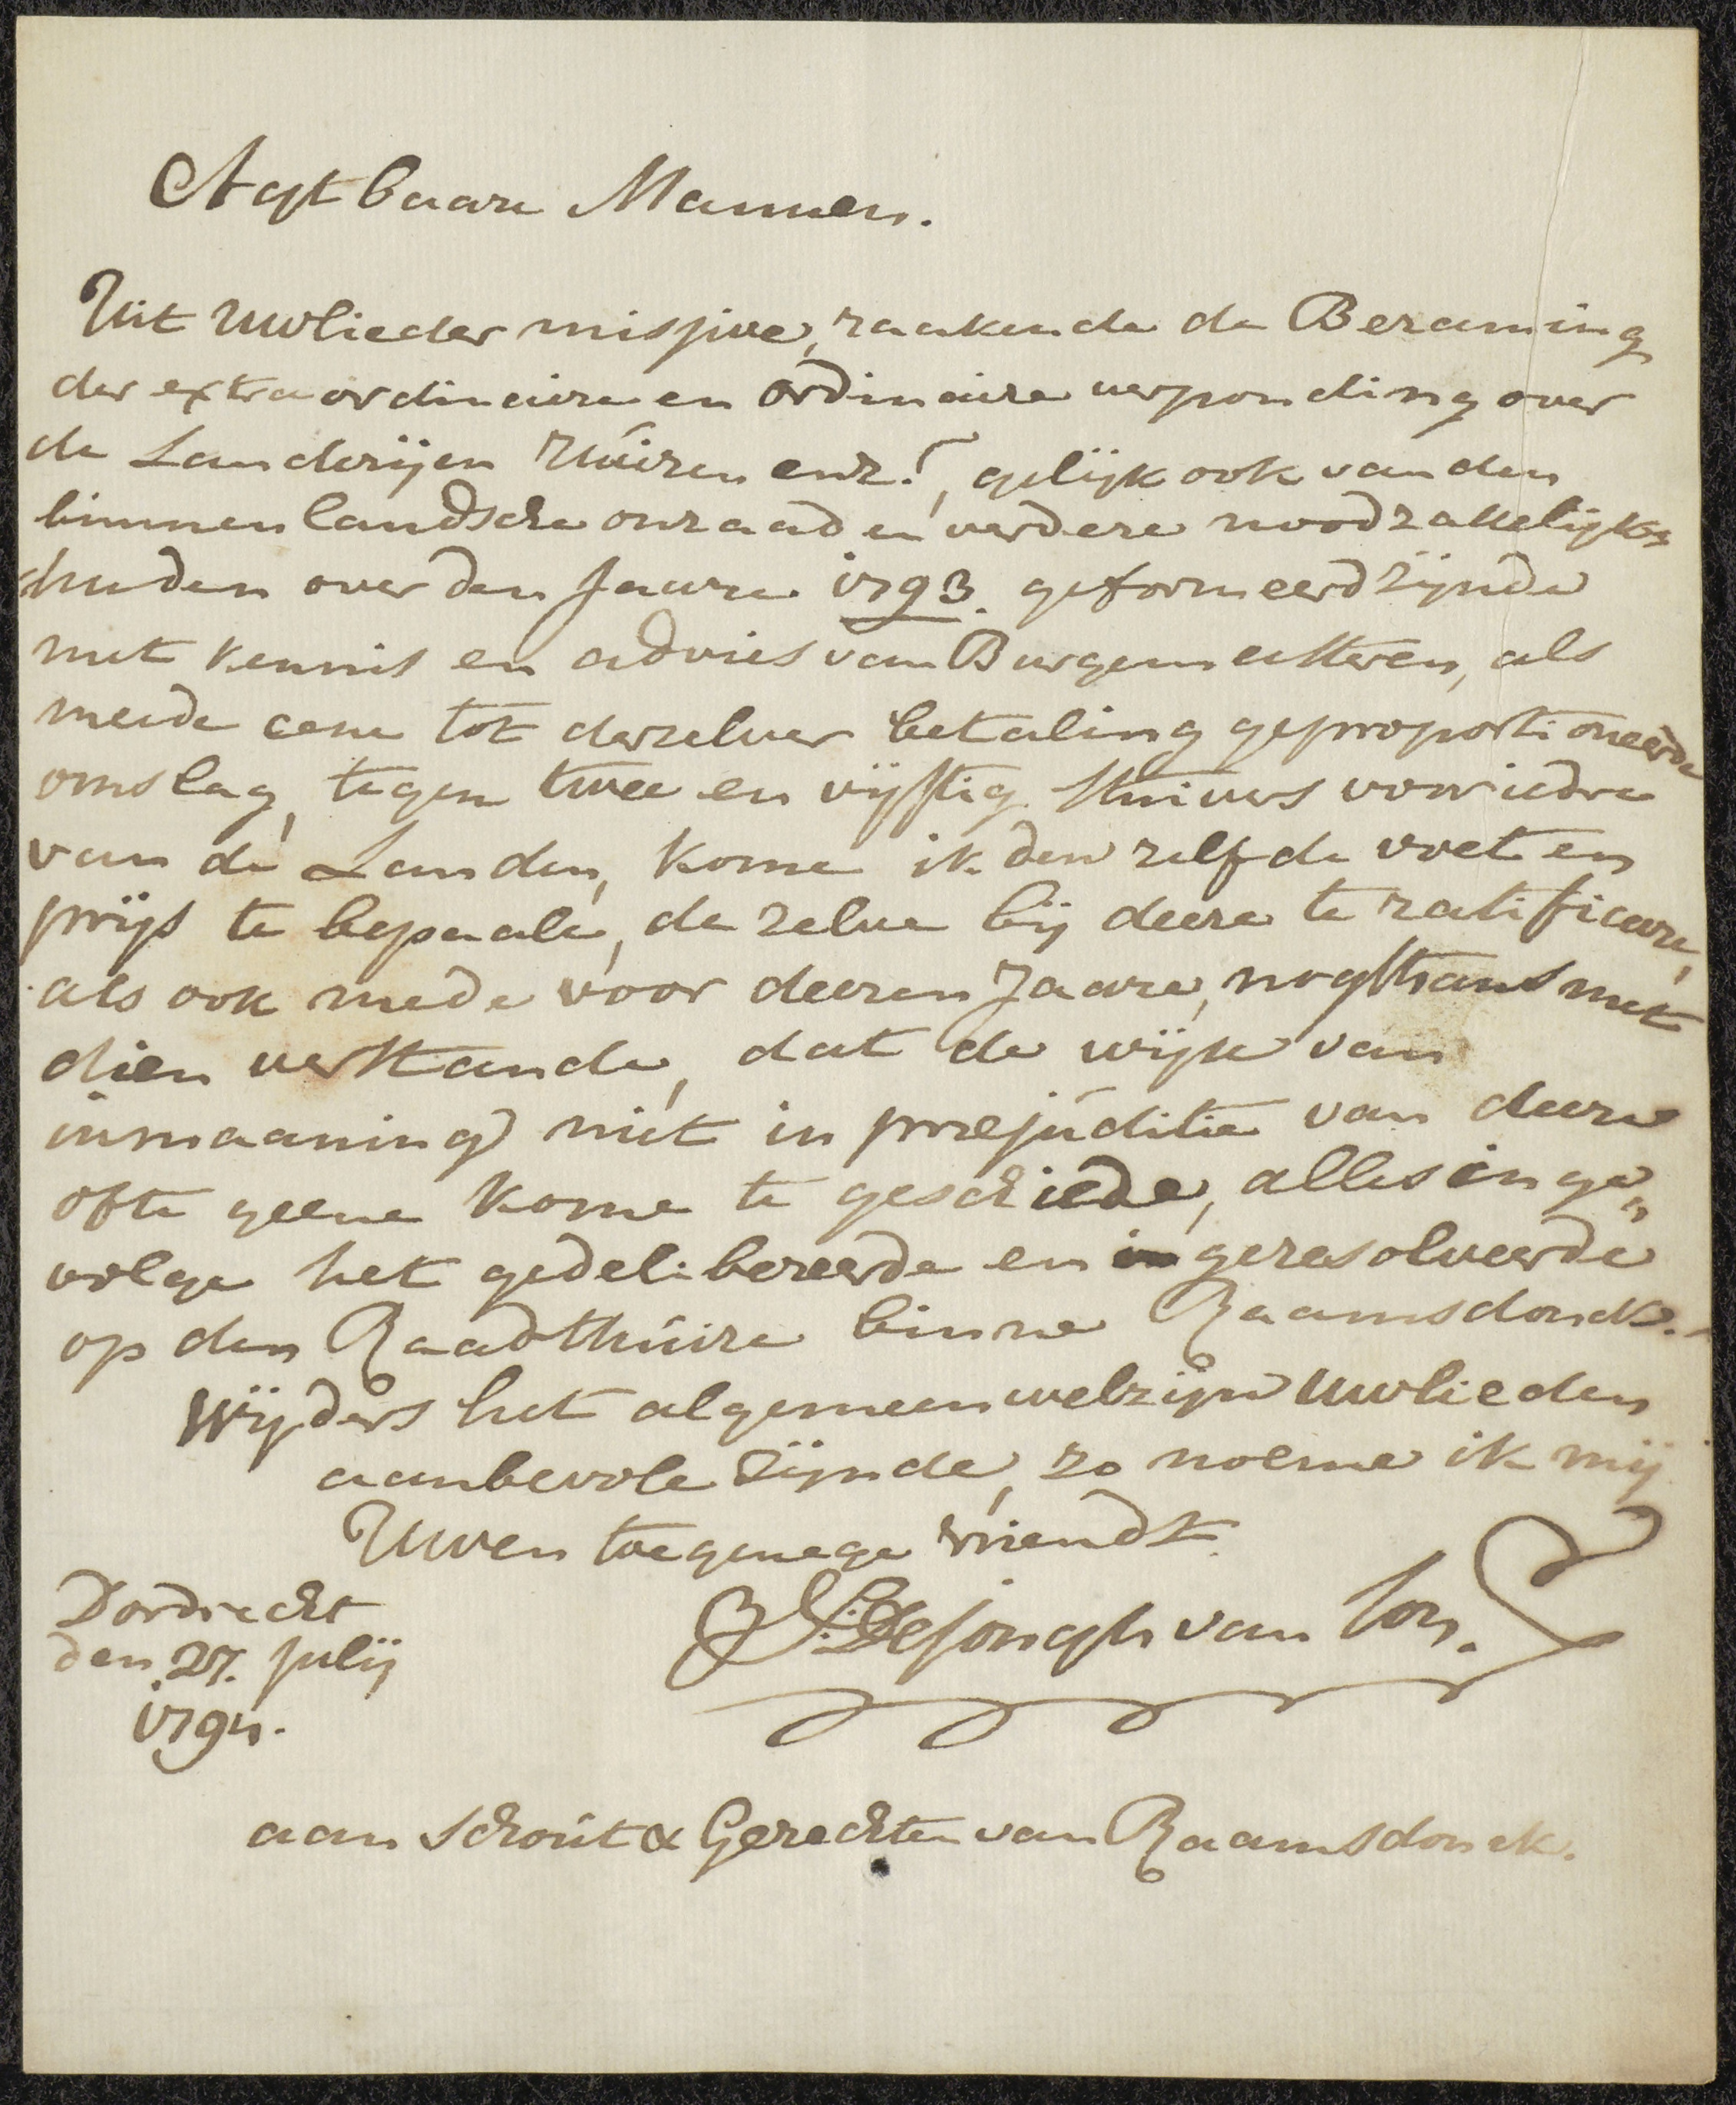 Agtbaare Mannen.
Uit Uwlieder missive, raakende de Beraming
der extraordinaire en ordinaire verponding over
de Landerijen Huizen enz:, gelijk ook van den
binnenlandsche onraad en verdere noodzakelijk=
heeden over den Jaare 1793. geformeerd zijnde
met kennis en advies van Burgemeesteren, als
meede eene tot derzelver betaling geproportioneerde
omslag, tegen twee en vijftig stuivers voor iedre
van de Landen, kome ik den zelfde voet en
prijs te bepaale, de zelve bij deeze te ratificeere,
als ook mede voor deezen Jaare, nogthans met
dien verstande, dat de wijze van
inmaaning niet in prejuditie van deeze
ofte geene kome te geschiede, alles in ge=
volge het gedelibereerde en geresolveerde
op den Raadthuize binne Raamsdonck.
Wijders het algemeen welzijn Uwlieden
aanbevole zijnde, zo noeme ik mij
Uwen toegenege vriendt
Dordrecht
den 27. Julij
1794.
de Jongh van Son.
aan Schout & Gerechten van Raamsdonck.